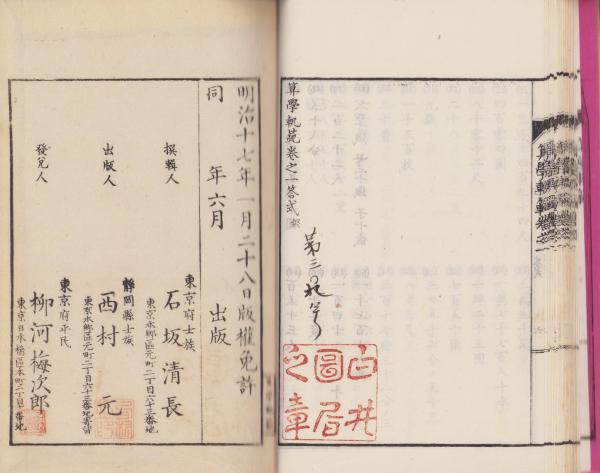 算學軌範卷之一答式 終
白井
圖居
之章
明治十七年一月二十八日版權免許
同 年六月 出版
撰輯人
東京府士族
石坂清長
東京本郷區元町二丁目六十三番地
出版人
靜岡縣士族
西村 元
東京本郷區元町二丁目六十三番地寄留
發兌人
東京府平民
柳河梅次郎
東京日本橋區本町二丁目一番地